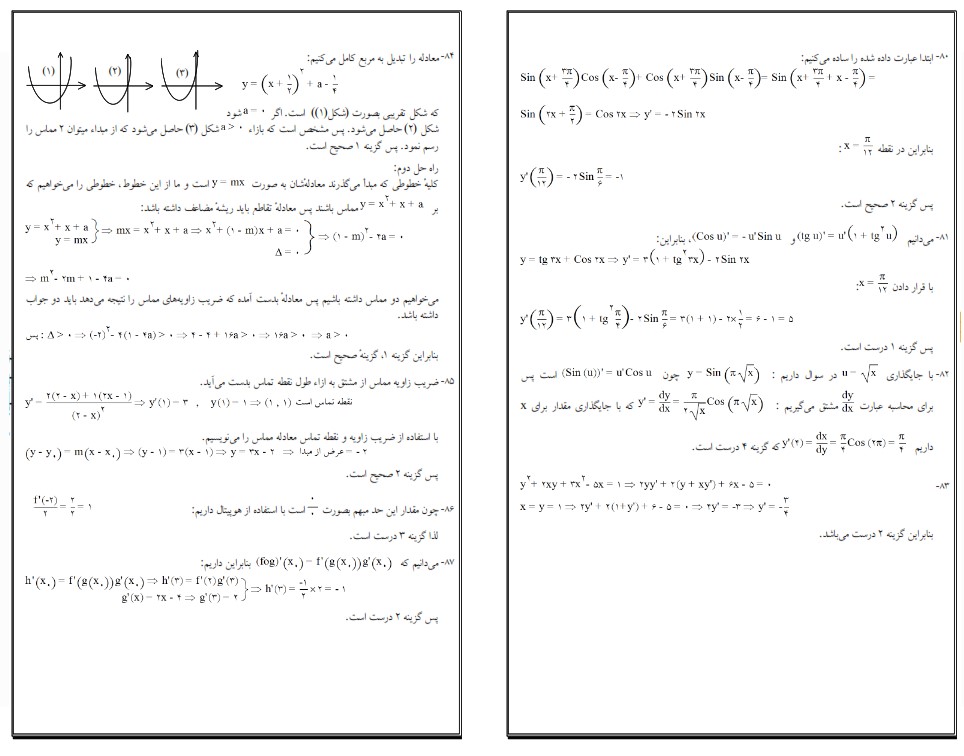 ۸۰- ابتدا عبارت داده شده را ساده می‌کنیم:
Sin (x+ ۳π/۴) Cos (x- π/۴)+ Cos (x+ ۳π/۴) Sin (x- π/۴)= Sin (x+ ۳π/۴ + x - π/۴) =
Sin (۲x + π/۲) = Cos ۲x ⇒ y' = - ۲ Sin ۲x
بنابراین در نقطه x = π/۱۲ :
y'(π/۱۲) = - ۲ Sin π/۶ = -۱
پس گزینه ۲ صحیح است.
۸۱- می‌دانیم (tg u)' = u'(۱ + tg²u) و (Cos u)' = - u' Sin u ، بنابراین:
y = tg ۳x + Cos ۲x ⇒ y' = ۳(۱ + tg² ۳x) - ۲ Sin ۲x
با قرار دادن x = π/۱۲:
y'(π/۱۲) = ۳(۱ + tg² π/۴) - ۲ Sin π/۶ = ۳(۱ + ۱) - ۲× ۱/۲ = ۶ - ۱ = ۵
پس گزینه ۱ درست است.
۸۲- با جایگذاری u = √x در سوال داریم : y = Sin (π√x) چون (Sin (u))' = u' Cos u است پس
برای محاسبه عبارت dy/dx مشتق می‌گیریم : y' = dy/dx = π/۲√x Cos (π√x) که با جایگذاری مقدار برای x
داریم y'(۴) = dx/dy = π/۴ Cos (۲π) = π/۴ که گزینه ۴ درست است.
۸۳- y² + ۲xy + ۳x² - ۵x = ۱ ⇒ ۲yy' + ۲(y + xy') + ۶x - ۵ = ۰
x = y = ۱ ⇒ ۲y' + ۲(۱+y') + ۶ - ۵ = ۰ ⇒ ۴y' = -۳ ⇒ y' = - ۳/۴
بنابراین گزینه ۲ درست می‌باشد.
۸۴- معادله را تبدیل به مربع کامل می‌کنیم:
(۱) (۲) (۳)
y = (x + ۱/۲)² + a - ۱/۴
که شکل تقریبی بصورت (شکل(۱)) است. اگر a = ۰ شود
شکل (۲) حاصل می‌شود. پس مشخص است که بازاء a > ۰ شکل (۳) حاصل می‌شود که از مبداء میتوان ۲ مماس را
رسم نمود. پس گزینه ۱ صحیح است.
راه حل دوم:
کلیهٔ خطوطی که مبدأ می‌گذرند معادله‌شان به صورت y = mx است و ما از این خطوط، خطوطی را می‌خواهیم که
بر y = x² + x + a مماس باشند پس معادلهٔ تقاطع باید ریشهٔ مضاعف داشته باشد:
y = x² + x + a
y = mx } ⇒ mx = x² + x + a ⇒ x² + (۱ - m)x + a = ۰
Δ = ۰ } ⇒ (۱ - m)² - ۴a = ۰
⇒ m² - ۲m + ۱ - ۴a = ۰
می‌خواهیم دو مماس داشته باشیم پس معادلهٔ بدست آمده که ضریب زاویه‌های مماس را نتیجه می‌دهد باید دو جواب
داشته باشد.
پس : Δ > ۰ ⇒ (-۲)² - ۴(۱ - ۴a) > ۰ ⇒ ۴ - ۴ + ۱۶a > ۰ ⇒ ۱۶a > ۰ ⇒ a > ۰
بنابراین گزینه ۱، گزینهٔ صحیح است.
۸۵- ضریب زاویه مماس از مشتق به ازاء طول نقطه تماس بدست می‌آید.
y' = ۲(۲ - x) + ۱(۲x - ۱)/(۲ - x)² ⇒ y'(۱) = ۳ , y(۱) = ۱ ⇒ (۱ , ۱) نقطه تماس است
با استفاده از ضریب زاویه و نقطه تماس معادله مماس را می‌نویسیم.
(y - y₀) = m(x - x₀) ⇒ (y - ۱) = ۳(x - ۱) ⇒ y = ۳x - ۲ ⇒ عرض از مبدا = - ۲
پس گزینه ۲ صحیح است.
۸۶- چون مقدار این حد مبهم بصورت ۰/۰ است با استفاده از هوپیتال داریم: f'(-۲)/۲ = ۲/۲ = ۱
لذا گزینه ۳ درست است.
۸۷- می‌دانیم که (fog)'(x₀) = f'(g(x₀))g'(x₀) بنابراین داریم:
h'(x₀) = f'(g(x₀))g'(x₀) ⇒ h'(۳) = f'(۲)g'(۳)
g'(x) = ۲x - ۴ ⇒ g'(۳) = ۲ } ⇒ h'(۳) = -۱/۲ × ۲ = - ۱
پس گزینه ۲ درست است.